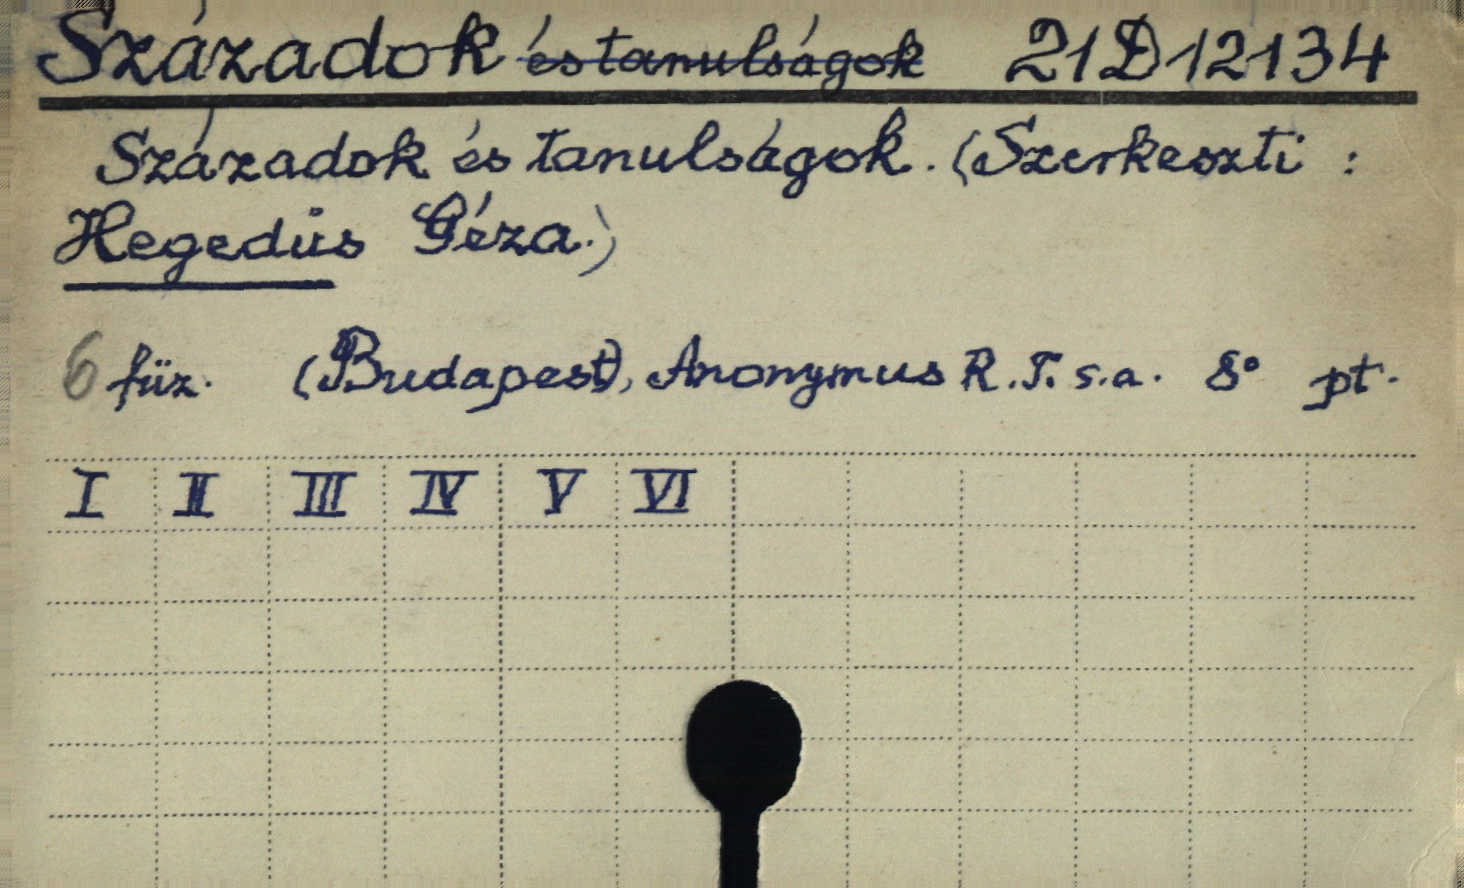 Századok és tanulságok 21D12134
Századok és tanulságok. (Szerkeszti :
Hegedüs Géza.)
6 füz. (Budapest), Anonymus R.T. s.a. 8° pt.
I II III IV V VI